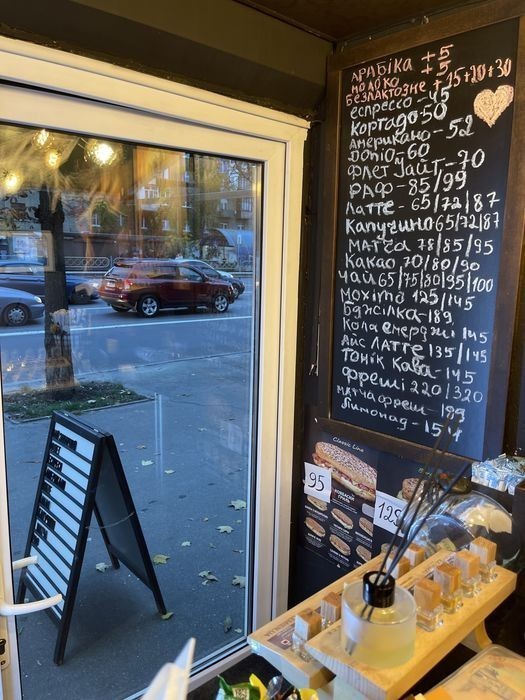 АРАБІКА +5
МОЛОКО +5
БЕЗЛАКТОЗНЕ +15+20+30
ЕСПРЕССО - 45
КОРТАДО - 50
АМЕРИКАНО - 52
ДОПІО - 60
ФЛЕТ УАЙТ - 70
РАФ - 85/99
ЛАТТЕ - 65/72/87
КАПУЧИНО 65/72/87
МАТЧА 78/85/95
КАКАО 70/80/90
ЧАЙ 65/75/80/95/100
МОХІТО 125/145
БДЖІЛКА - 189
КОЛА ЕНЕРДЖІ 145
АЙС ЛАТТЕ 135/145
ТОНІК КАВА - 145
ФРЕШІ 220/320
МАТЧА ФРЕШ - 189
ЛИМОНАД - 15
Classic Line
95
125